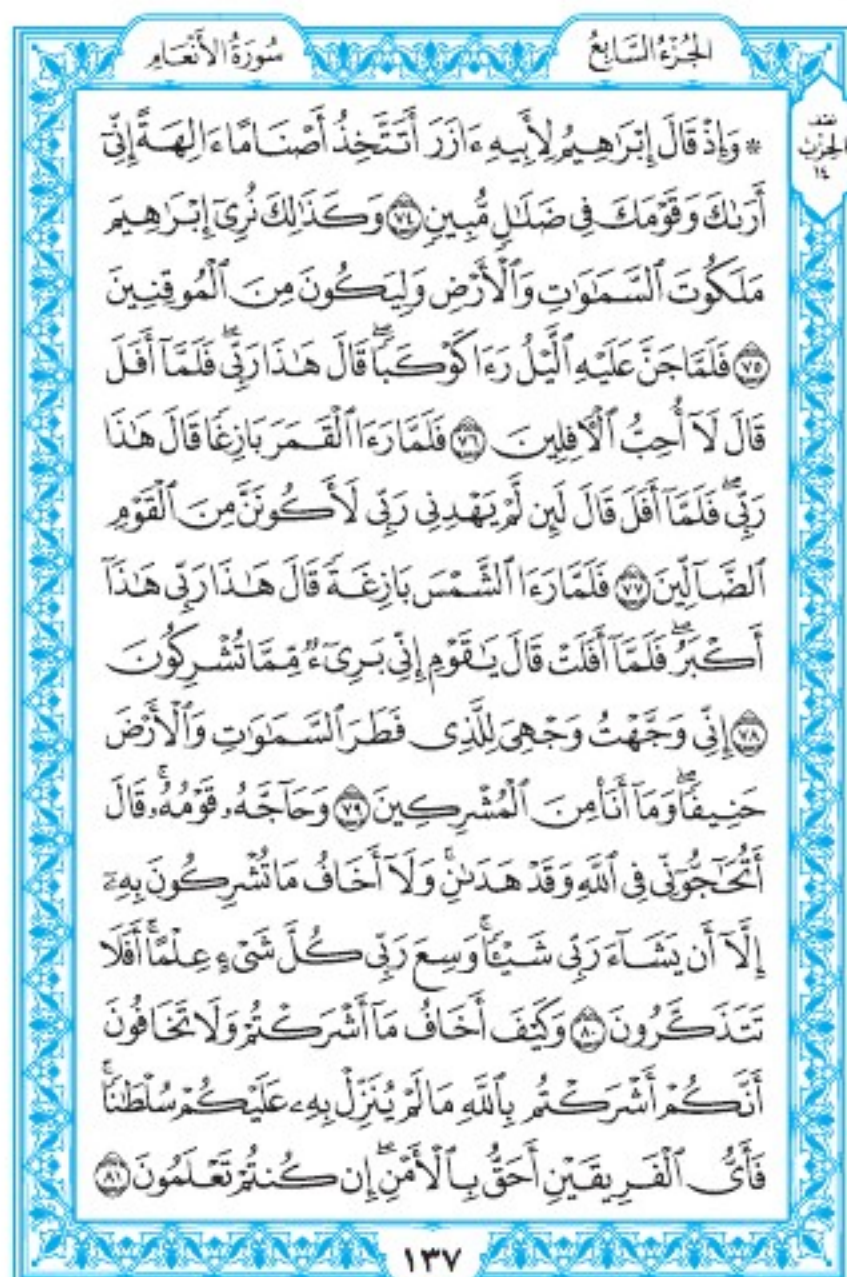 الجُزْءُ السَّابِعُ
سُورَةُ الأَنْعَامِ
نصف
الحِزْبِ
١٤
* وَإِذْ قَالَ إِبْرَٰهِيمُ لِأَبِيهِ ءَازَرَ أَتَتَّخِذُ أَصْنَامًا ءَالِهَةً إِنِّيٓ
أَرَىٰكَ وَقَوْمَكَ فِي ضَلَٰلٖ مُّبِينٖ ٧٤ وَكَذَٰلِكَ نُرِيٓ إِبْرَٰهِيمَ
مَلَكُوتَ ٱلسَّمَٰوَٰتِ وَٱلْأَرْضِ وَلِيَكُونَ مِنَ ٱلْمُوقِنِينَ
٧٥ فَلَمَّا جَنَّ عَلَيْهِ ٱلَّيْلُ رَءَا كَوْكَبٗاۖ قَالَ هَٰذَا رَبِّيۖ فَلَمَّآ أَفَلَ
قَالَ لَآ أُحِبُّ ٱلْأٓفِلِينَ ٧٦ فَلَمَّا رَءَا ٱلْقَمَرَ بَازِغٗا قَالَ هَٰذَا
رَبِّيۖ فَلَمَّآ أَفَلَ قَالَ لَئِن لَّمْ يَهْدِنِي رَبِّي لَأَكُونَنَّ مِنَ ٱلْقَوْمِ
ٱلضَّآلِّينَ ٧٧ فَلَمَّا رَءَا ٱلشَّمْسَ بَازِغَةٗ قَالَ هَٰذَا رَبِّي هَٰذَآ
أَكْبَرُۖ فَلَمَّآ أَفَلَتْ قَالَ يَٰقَوْمِ إِنِّي بَرِيٓءٞ مِّمَّا تُشْرِكُونَ
٧٨ إِنِّي وَجَّهْتُ وَجْهِيَ لِلَّذِي فَطَرَ ٱلسَّمَٰوَٰتِ وَٱلْأَرْضَ
حَنِيفٗاۖ وَمَآ أَنَا۠ مِنَ ٱلْمُشْرِكِينَ ٧٩ وَحَآجَّهُۥ قَوْمُهُۥۚ قَالَ
أَتُحَٰٓجُّوٓنِّي فِي ٱللَّهِ وَقَدْ هَدَىٰنِۚ وَلَآ أَخَافُ مَا تُشْرِكُونَ بِهِۦٓ
إِلَّآ أَن يَشَآءَ رَبِّي شَيْـٔٗاۚ وَسِعَ رَبِّي كُلَّ شَيْءٍ عِلْمًاۚ أَفَلَا
تَتَذَكَّرُونَ ٨٠ وَكَيْفَ أَخَافُ مَآ أَشْرَكْتُمْ وَلَا تَخَافُونَ
أَنَّكُمْ أَشْرَكْتُم بِٱللَّهِ مَا لَمْ يُنَزِّلْ بِهِۦ عَلَيْكُمْ سُلْطَٰنٗاۚ
فَأَيُّ ٱلْفَرِيقَيْنِ أَحَقُّ بِٱلْأَمْنِۖ إِن كُنتُمْ تَعْلَمُونَ ٨١
١٣٧